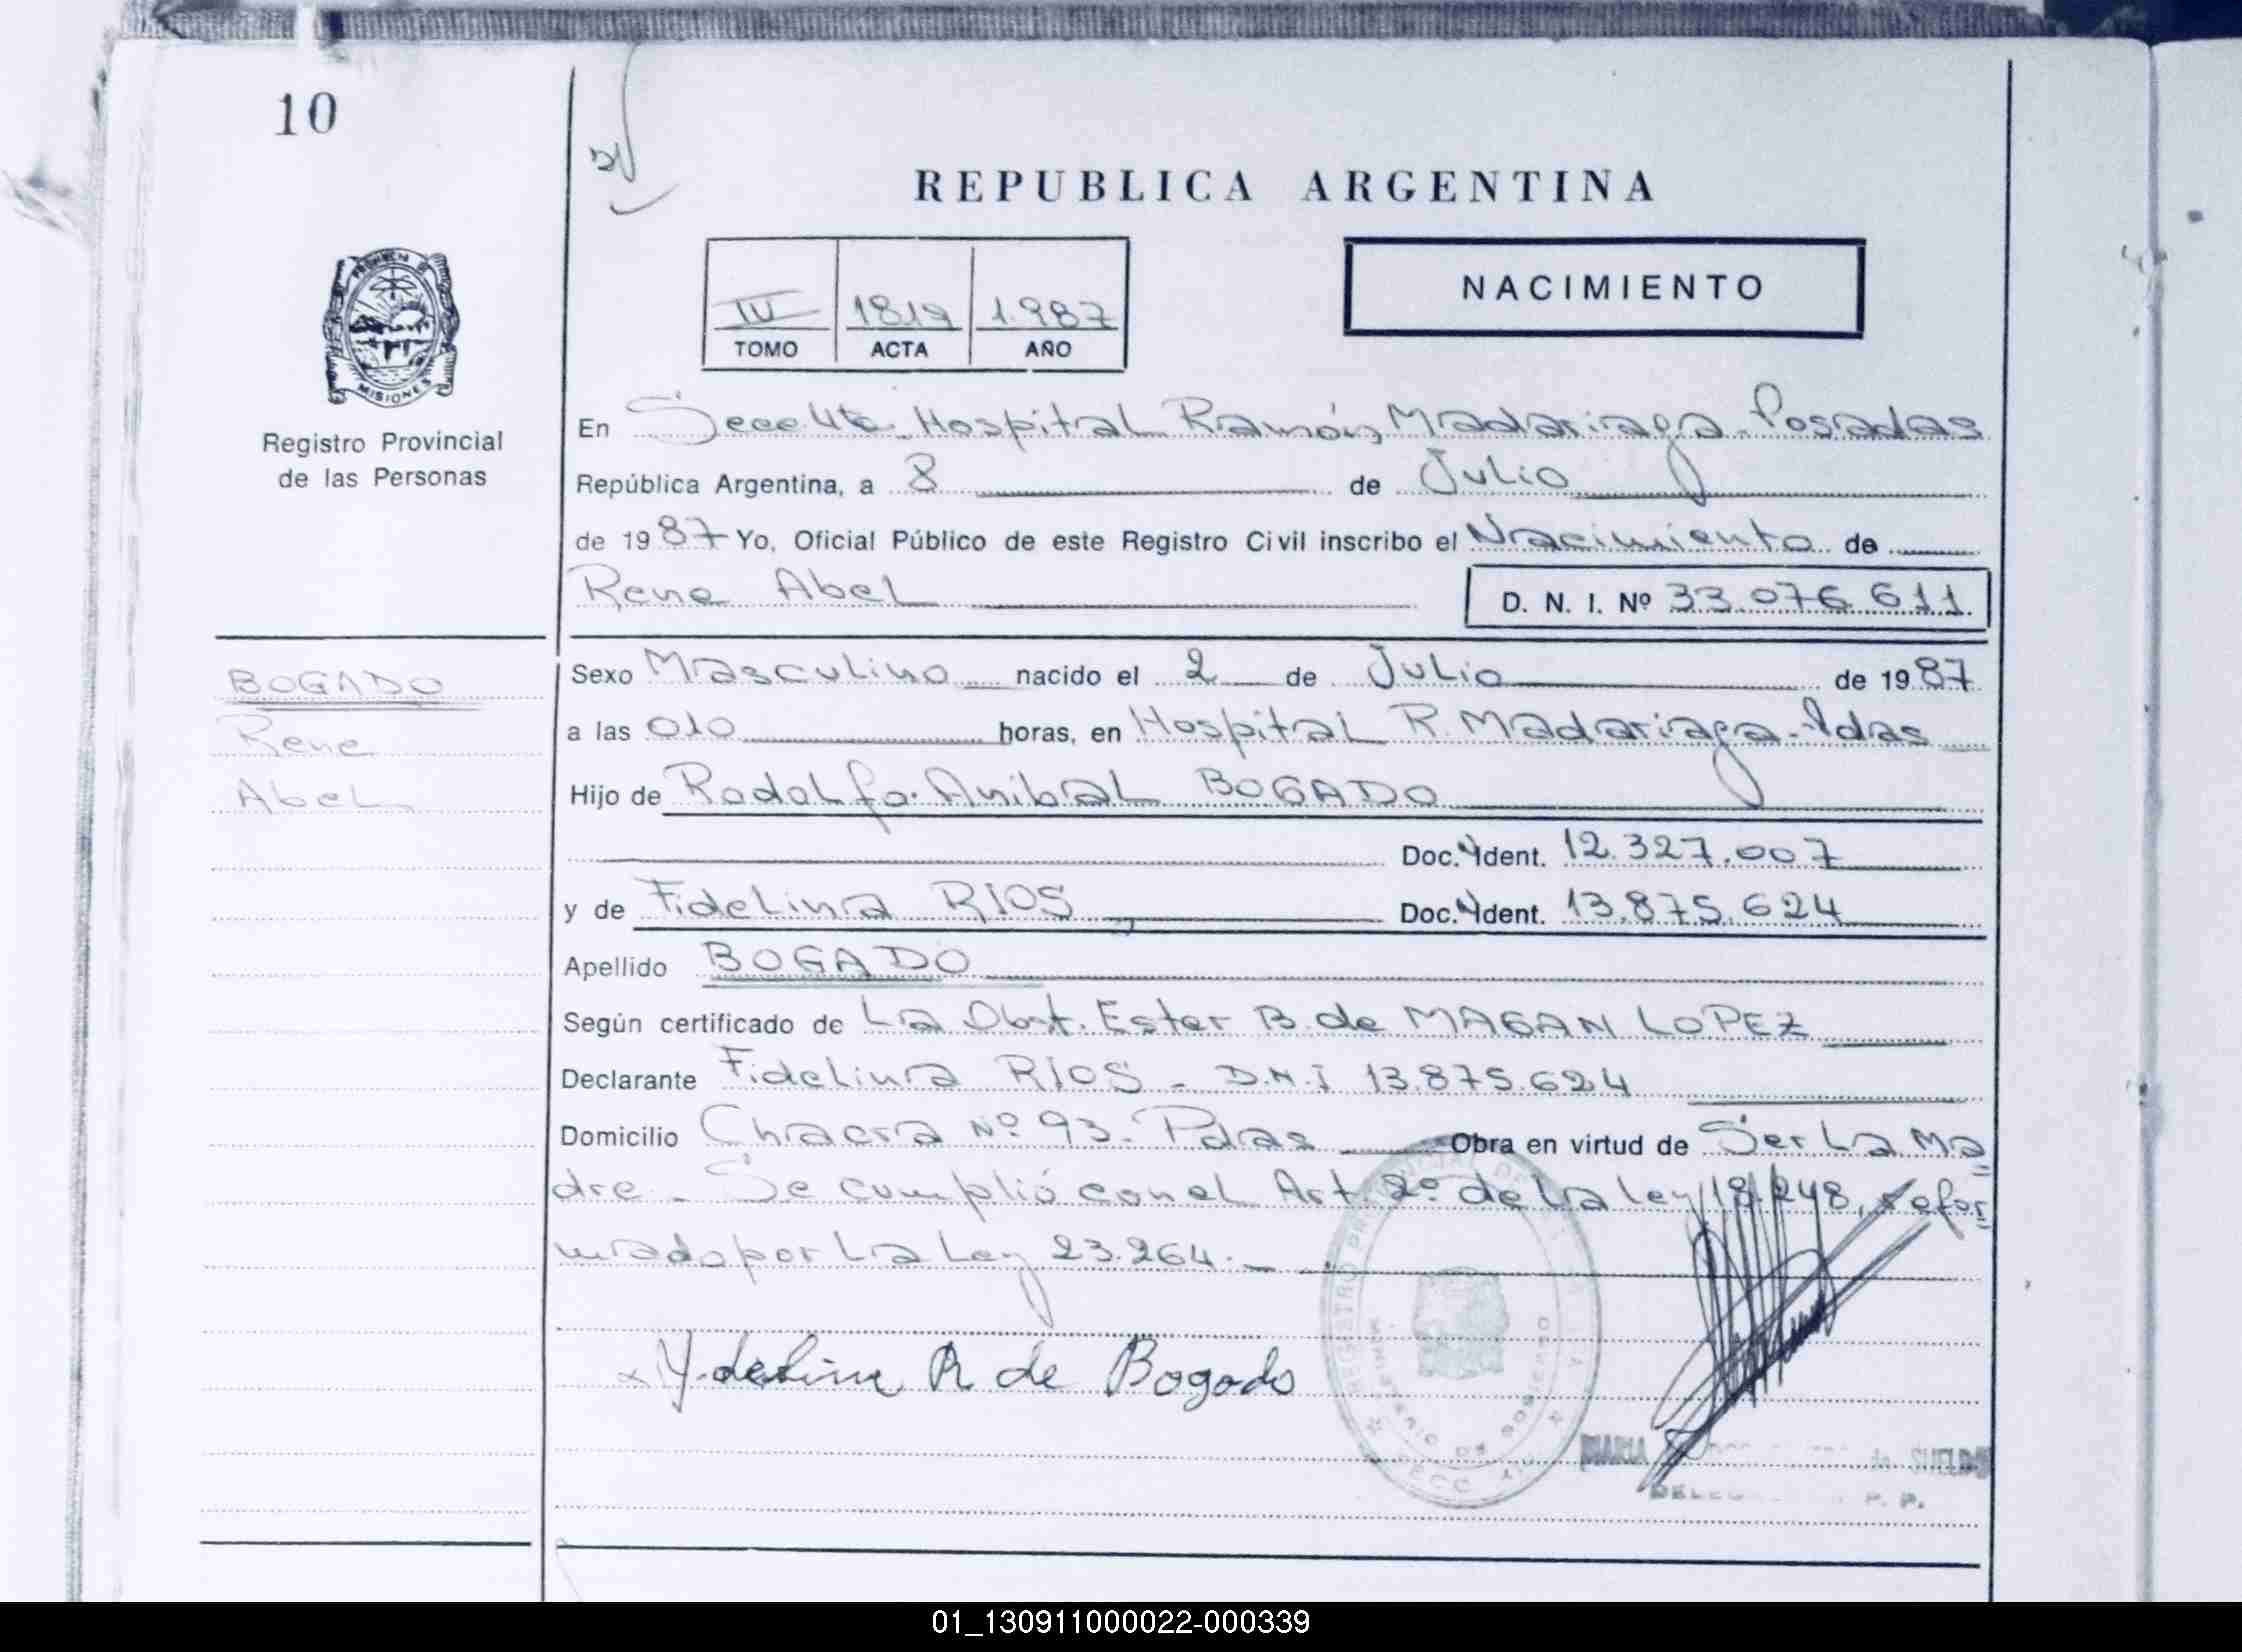 10
REPUBLICA ARGENTINA
NACIMIENTO
IV 1819 1.987
TOMO ACTA AÑO
PROVINCIA DE
MISIONES
Registro Provincial
de las Personas
En Secc. 4ta. Hospital Ramón Madariaga - Posadas
República Argentina, a 8 de Julio
de 1987 Yo, Oficial Público de este Registro Civil inscribo el Nacimiento de
Rene Abel D. N. I. Nº 33.076.611.
BOGADO
Rene
Abel
Sexo Masculino nacido el 2 de Julio de 1987
a las 010 horas, en Hospital R. Madariaga - Pdas
Hijo de Rodolfo Anibal BOGADO
Doc. Ident. 12.327.007
y de Fidelina RIOS Doc. Ident. 13.875.624
Apellido BOGADO
Según certificado de La Obst. Ester B. de MAGAN LOPEZ
Declarante Fidelina RIOS - D.N.I 13.875.624
Domicilio Chacra Nº 93. Pdas Obra en virtud de Ser La Ma
dre. - Se cumplió con el Art. 2º de La Ley 18.248, refor
mado por La Ley 23.264. -
R de Bogado
REGISTRO
MINISTERIO DE GOBIERNO
MARIA
P. P.
01_130911000022-000339